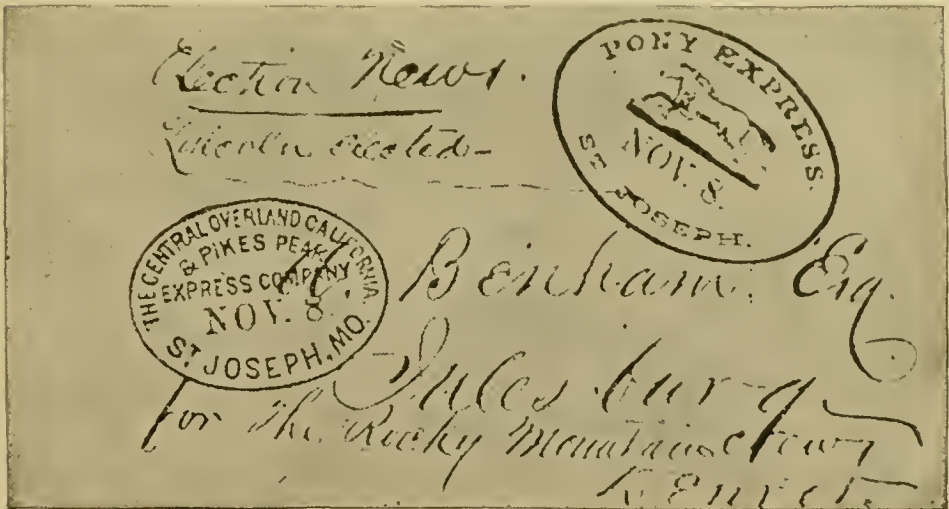 Election News.
Lincoln elected
PONY EXPRESS.
NOV. 8.
ST JOSEPH.
THE CENTRAL OVERLAND CALIFORNIA
& PIKES PEAK
EXPRESS COMPANY
NOV. 8.
ST JOSEPH, MO.
Benham, Esq.
Julesburg
for the Rocky Mountain News
Denver